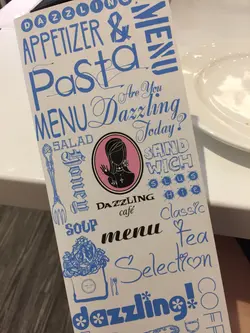 DAZZLING
APPETIZER &
MENU
Pasta
Are You
Dazzling
Today?
MENU
SALAD
Honey
SAND
WICH
DAZZLING
café
SOUP
menu
Classic
Tea
Selection
dazzling!